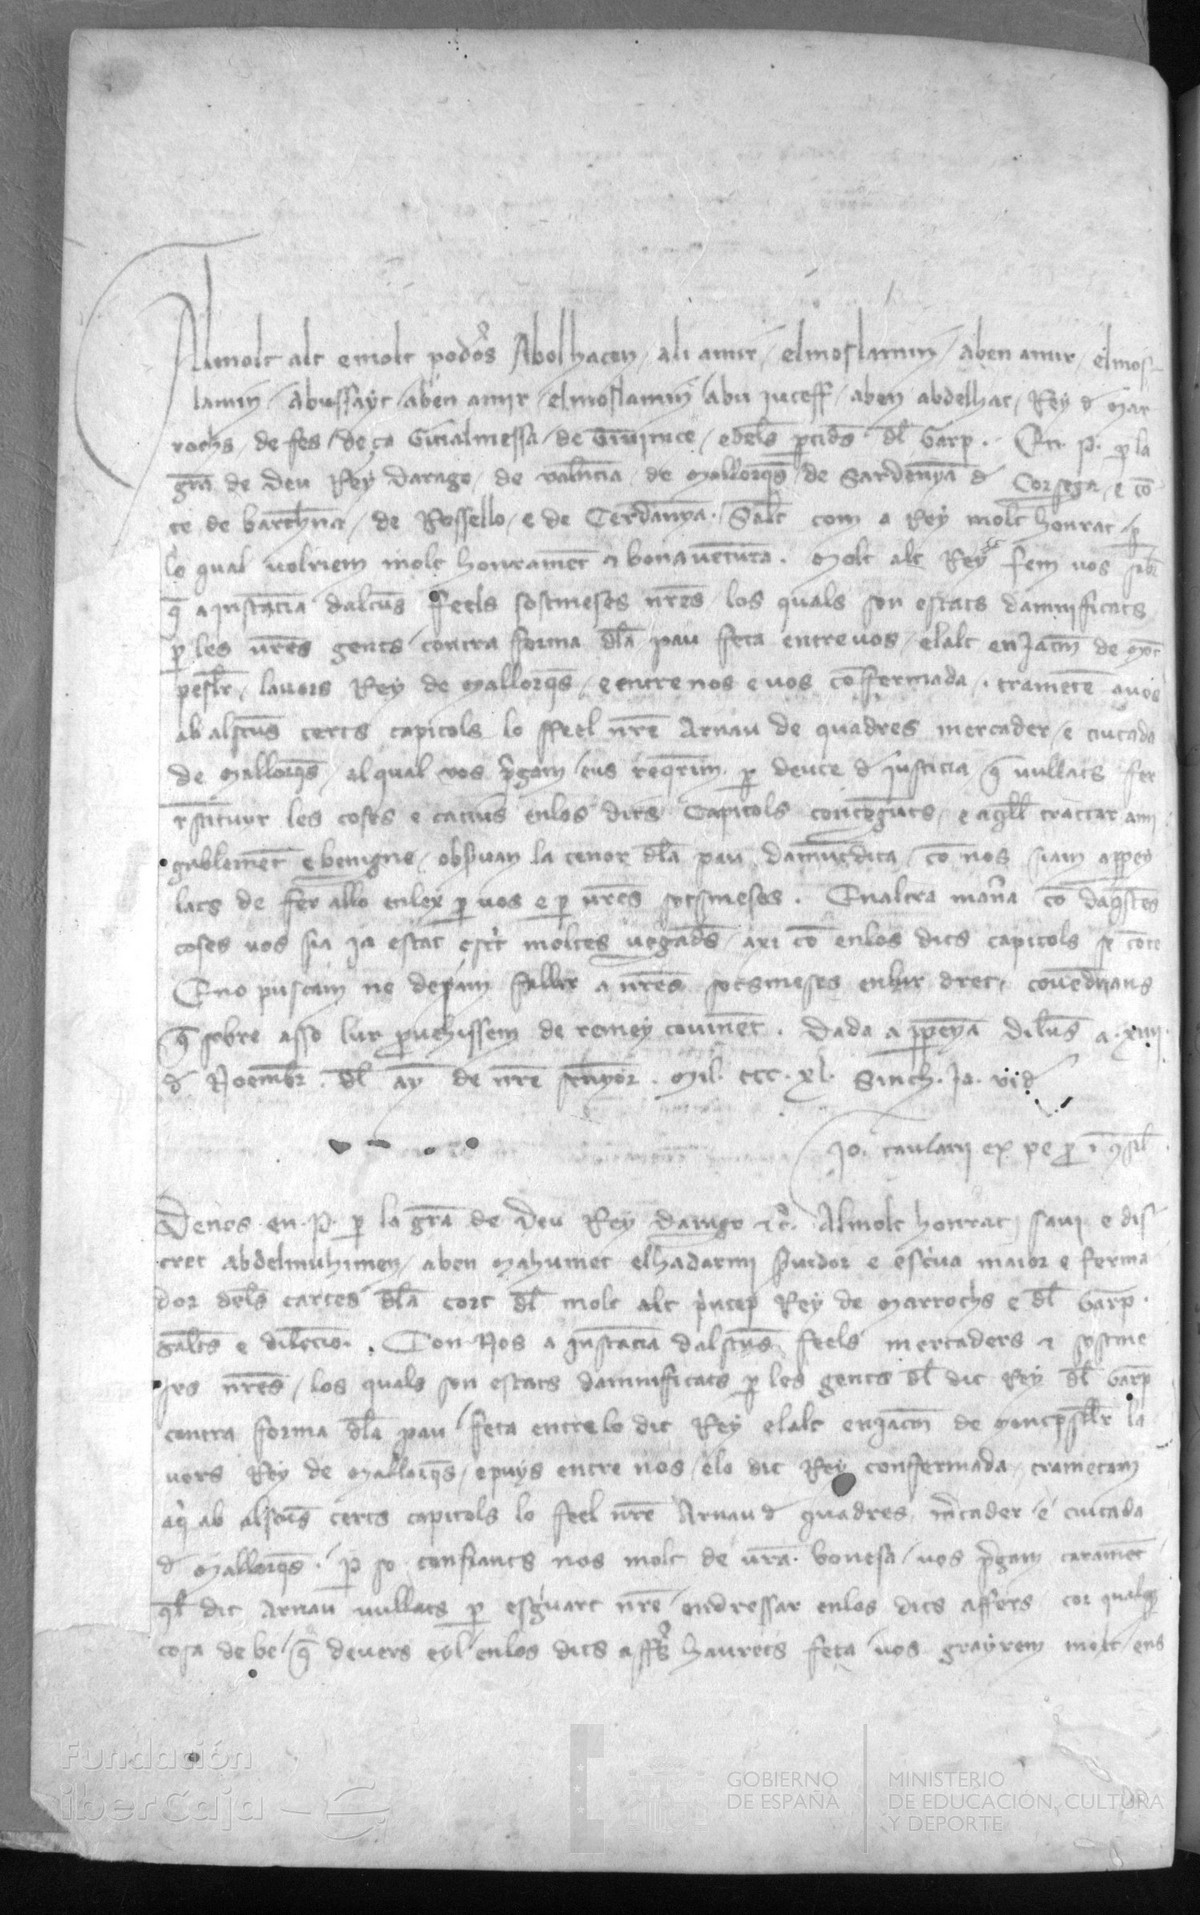 Al molt alt e molt podos Abolhacen / ali amir / elmoslamin / aben amir / elmos
lamin / Abussayt / aben amir / elmoslamin / abu juceff / aben abdelhac / Rey d Mar
rochs de fes / de ça / de / e dels ptides dl Garp . En . P . p la
gra de deu Rey Darago / de valencia / de Mallorqs / de Sardenya d Corsega / e co
te de barchna / de Rossello / e de Cerdanya . Salt com a Rey molt honrat / p
lo qual volriem molt honrament & bonaventura . Molt alt Rey fem vos saber
q a instancia dalcuns feels sostmeses nres / los quals son estats dampnificats
p les vres gents / contra forma dla pau feta entre vos / e lalt en Jacm de Mot
pesllr / lavors Rey de Mallorqs / e entre nos e vos confermada / trametem a vos
ab alscuns certs capitols lo ffeel nre Arnau de quadres mercader / e ciutada
de Mallorqs / al qual vos pgam / eus reqrim p deute d justicia / q vullats fer
restituyr les coses e catius en los dits Capitols contenguts / e aqll tractar ami
gablement e benigne / obsvan la tenor dla pau damuntdita / co nos siam appey
lats de fer allo en ley p vos e p vres sotsmeses . En altra mana co daqstes
coses vos sia ja estat escrit moltes vegades / axi co en los dits capitols se cote
E no puscam ne dejam fallir a nres sotsmeses en lur dret / covendrians
q sobre asso lur pvehissem de remey covinent . Dada a ppenya diluns a . xiii .
d Noembr . dl ay de nre senyor . Mil . ccc . xl . Sinch . Ja . vid
Jo . ex pe p i co sil
De nos en . P . p la gra de deu Rey Darago &c . Al molt honrat / savi e dis
cret Abdelmuhimen / aben Mahumet elhadarmi svidor e escriva maior e ferma
dor dels cartes dla cort dl molt alt princep Rey de Marrochs e dl Garp .
salts e dileccio . Con Nos a instancia dalscuns feels mercaders & sostme
ses nres / los quals son estats dampnificats p les gents dl dit Rey dl Garp
contra forma dla pau / feta entre lo dit Rey e lalt en Jacm de Montpsllr la
vors Rey de Mallorqs / e puys entre nos / e lo dit Rey confermada / trametam
aqi ab alscuns certs capitols lo feel nre Arnau d quadres / mcader / e ciutada
d Mallorqs . P so confiants nos molt de vra . bonesa / vos pgam carament
ql dit Arnau vullats p esguart nre endressar en los dits affers cor qualq
cosa de be / q devers eyl en los dits affs haurets feta vos grayrem molt / ens
Fundación
iberCaja
GOBIERNO
DE ESPAÑA
MINISTERIO
DE EDUCACIÓN, CULTURA
Y DEPORTE